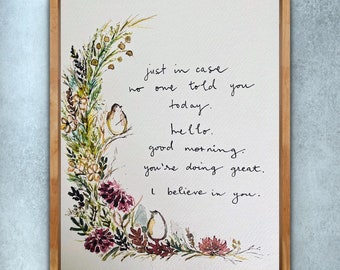 just in case
no one told you
today.
hello.
good morning.
you're doing great.
I believe in you.